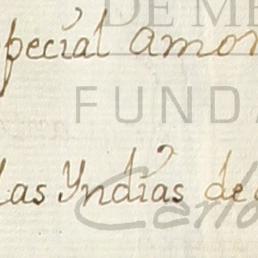 DE ME
pecial amor
FUNDA
las Yndias de
Carlo